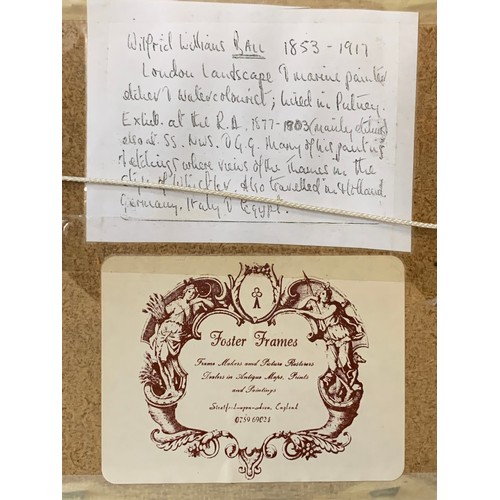 Wilfrid Williams BALL 1853 - 1917
London Landscape & marine painter
etcher & watercolourist; lived in Putney.
Exhib. at the R.A. 1877-1903 (mainly etchings
also at SS. NWS. O.G.G. Many of his paintings
& etchings where views of the Thames in the
style of Whistler. Also travelled in Holland
Germany, Italy & Egypt.
Foster Frames
Frame Makers and Picture Restorers
Dealers in Antique Maps, Prints
and Paintings
Stratford-upon-Avon, England
0789 69024